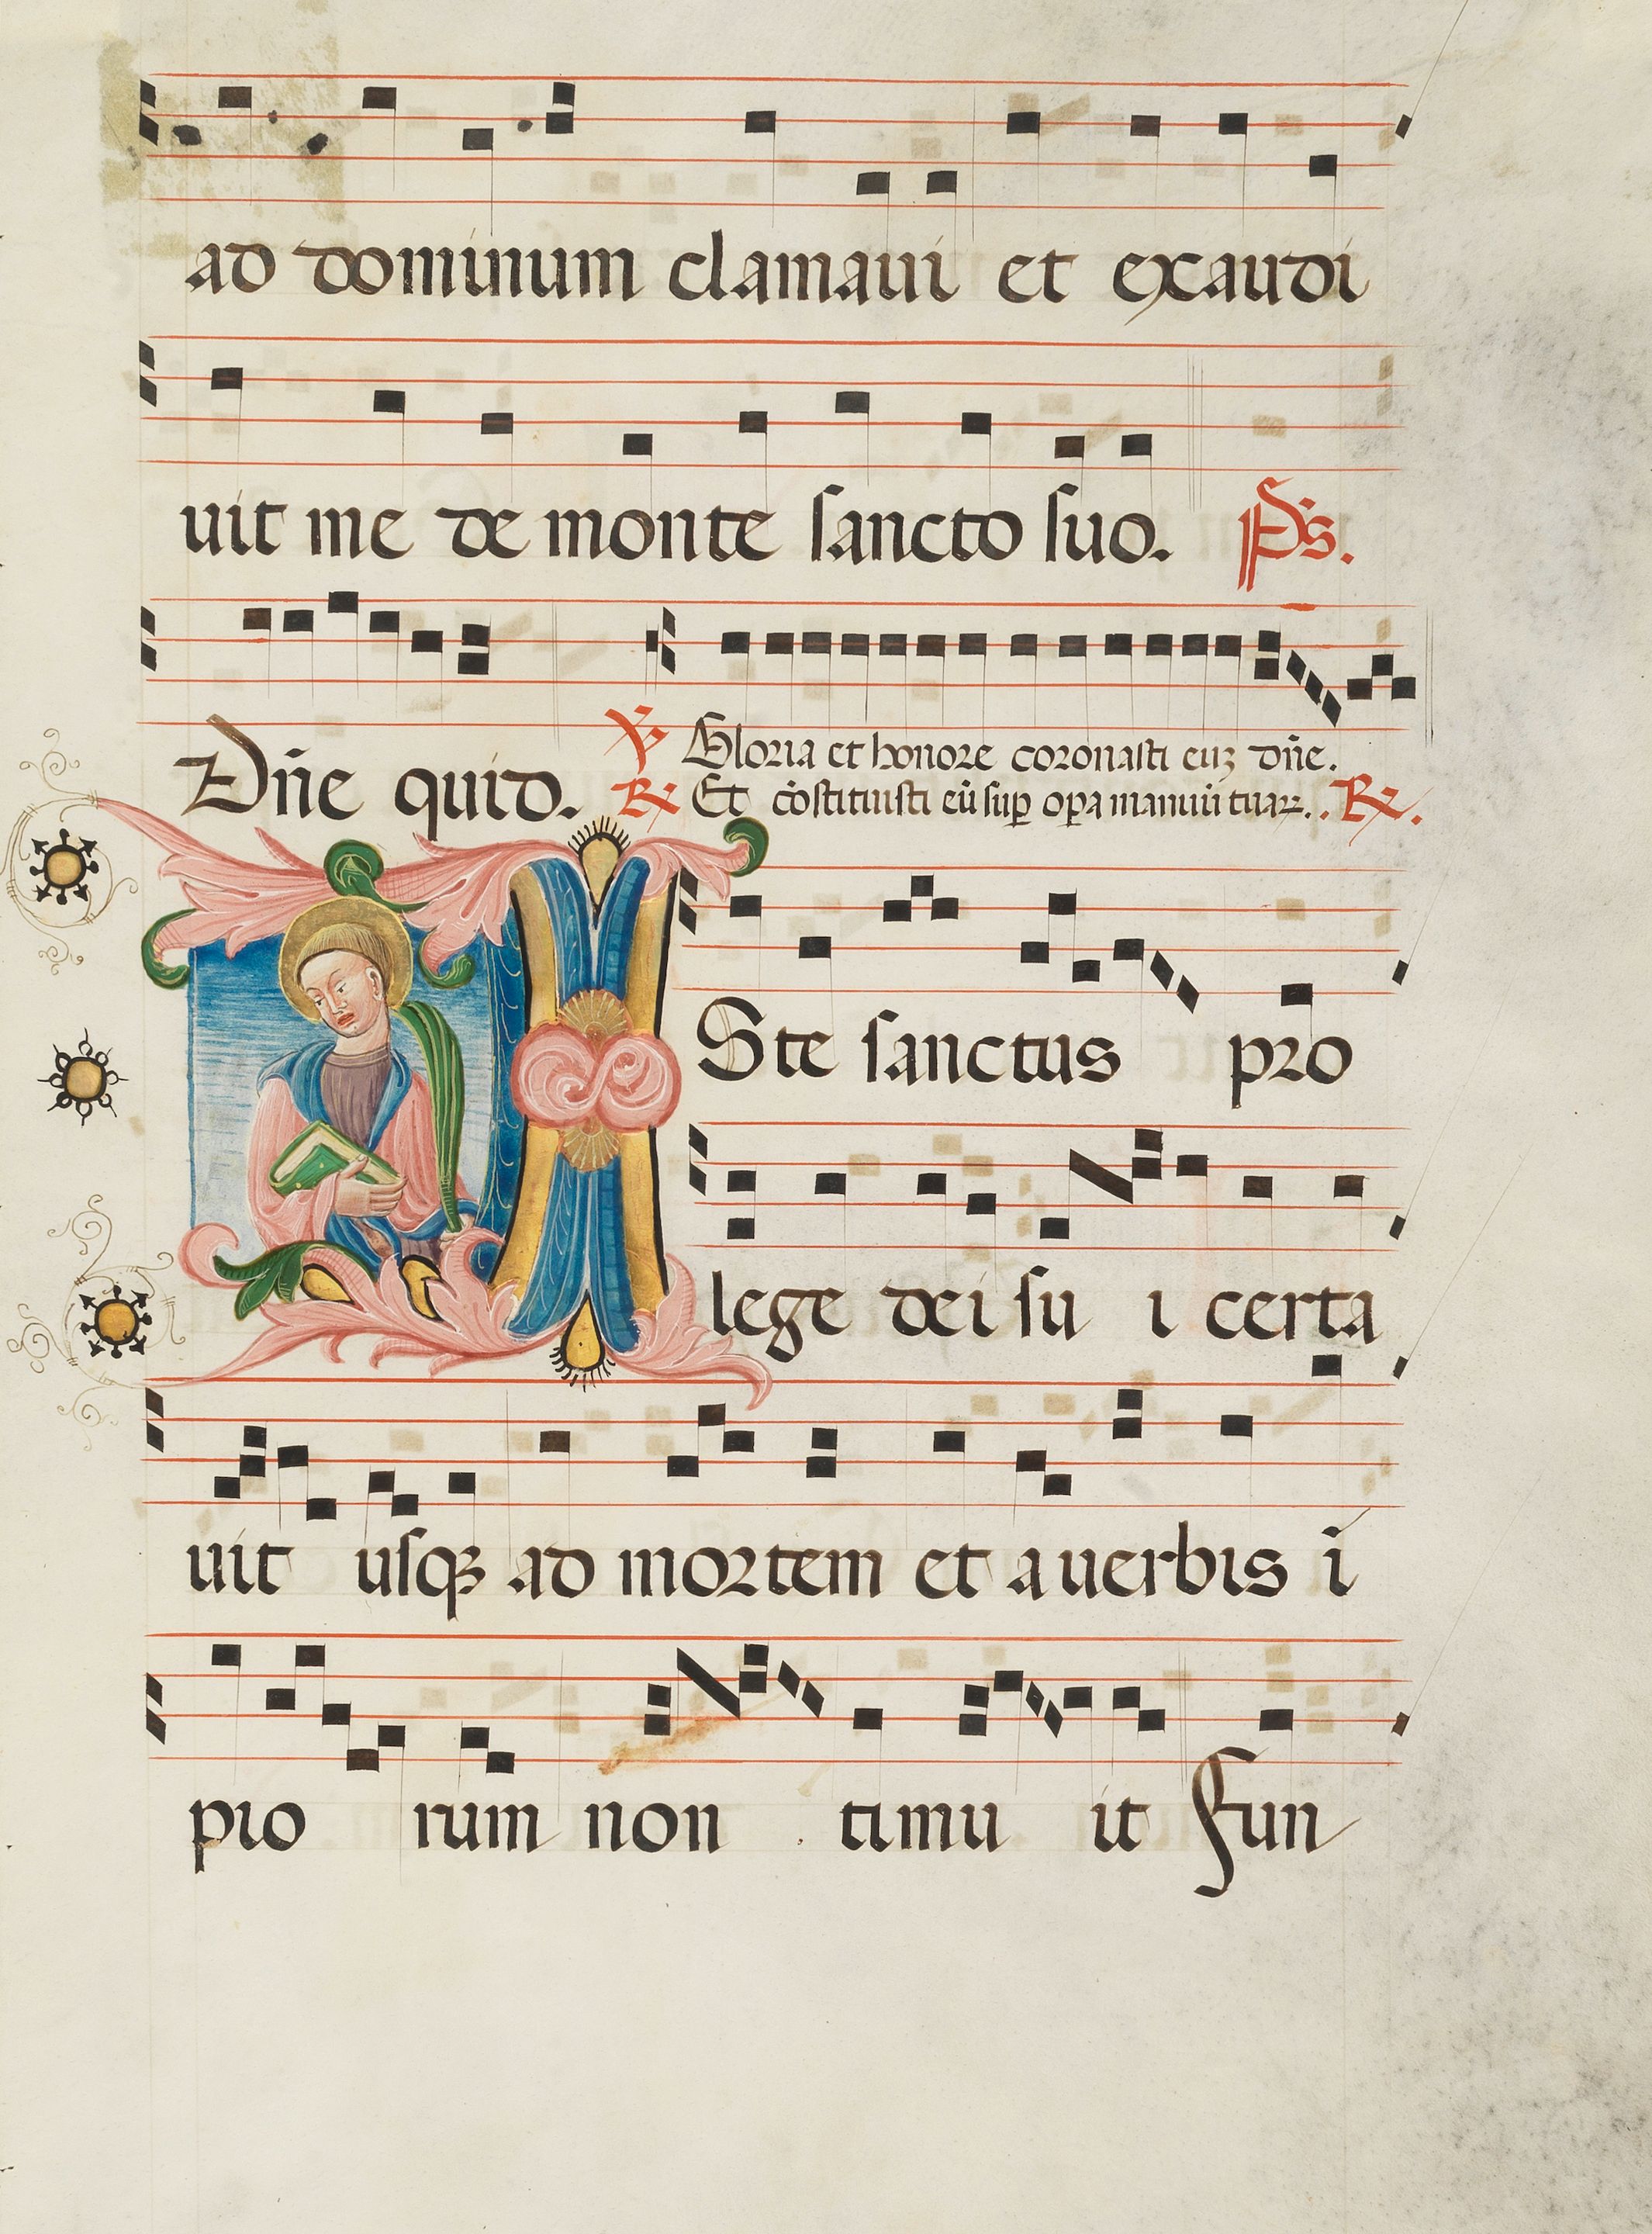 ad dominum clamaui et exaudi
uit me de monte sancto suo. Ps.
Dn̄e quid. ℣ Gloria et honore coronasti euꝫ dn̄e.
℟ Et cōstituisti eū suꝑ oꝑa manuū tuaꝝ. . ℟.
ISte sanctus pro
lege dei su i certa
uit usqꝫ ad mortem et a uerbis i
pio rum non timu it Fun